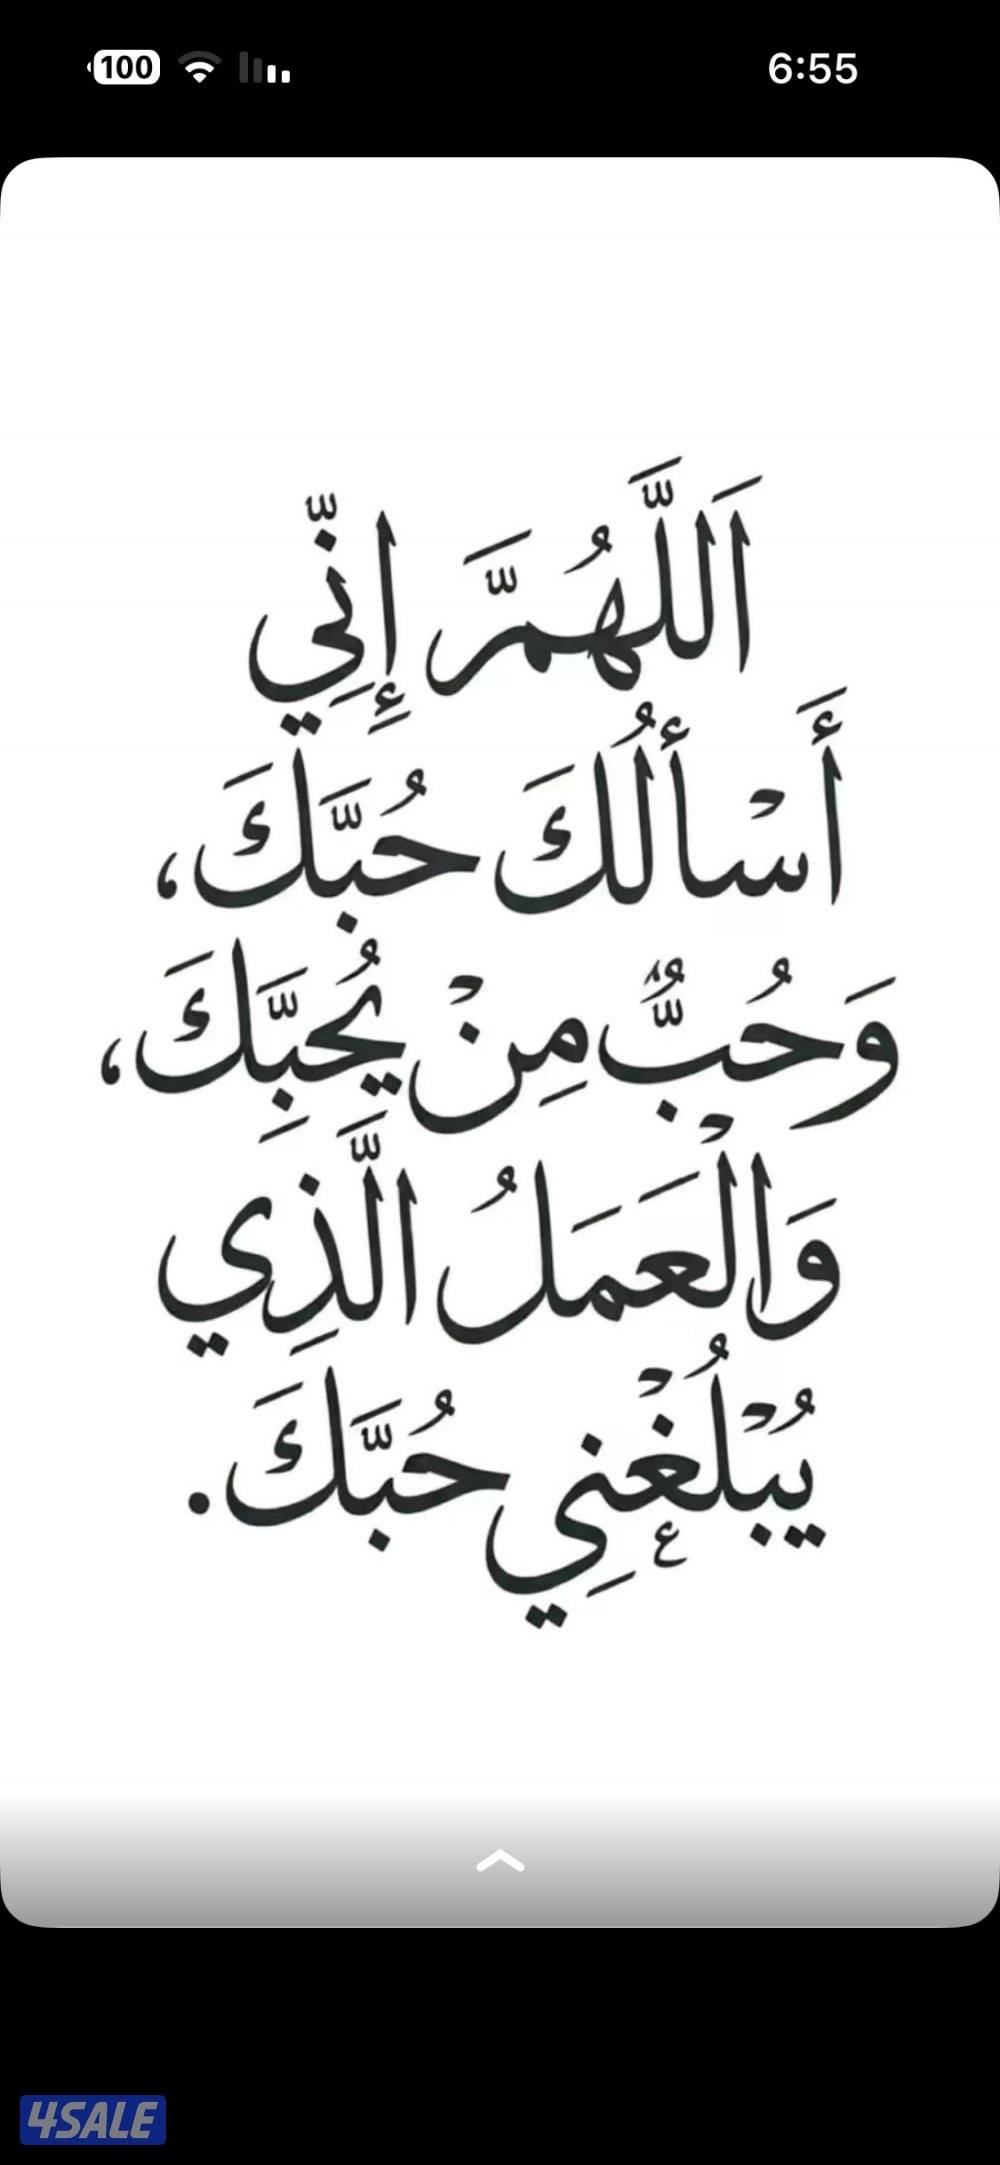 100
6:55
اَللَّهُمَّ إِنِّي
أَسْأَلُكَ حُبَّكَ،
وَحُبٌّ مِنْ يُحِبِّكَ،
وَالْعَمَلُ الَّذِي
يُبْلُغْنِي حُبَّكَ.
4SALE